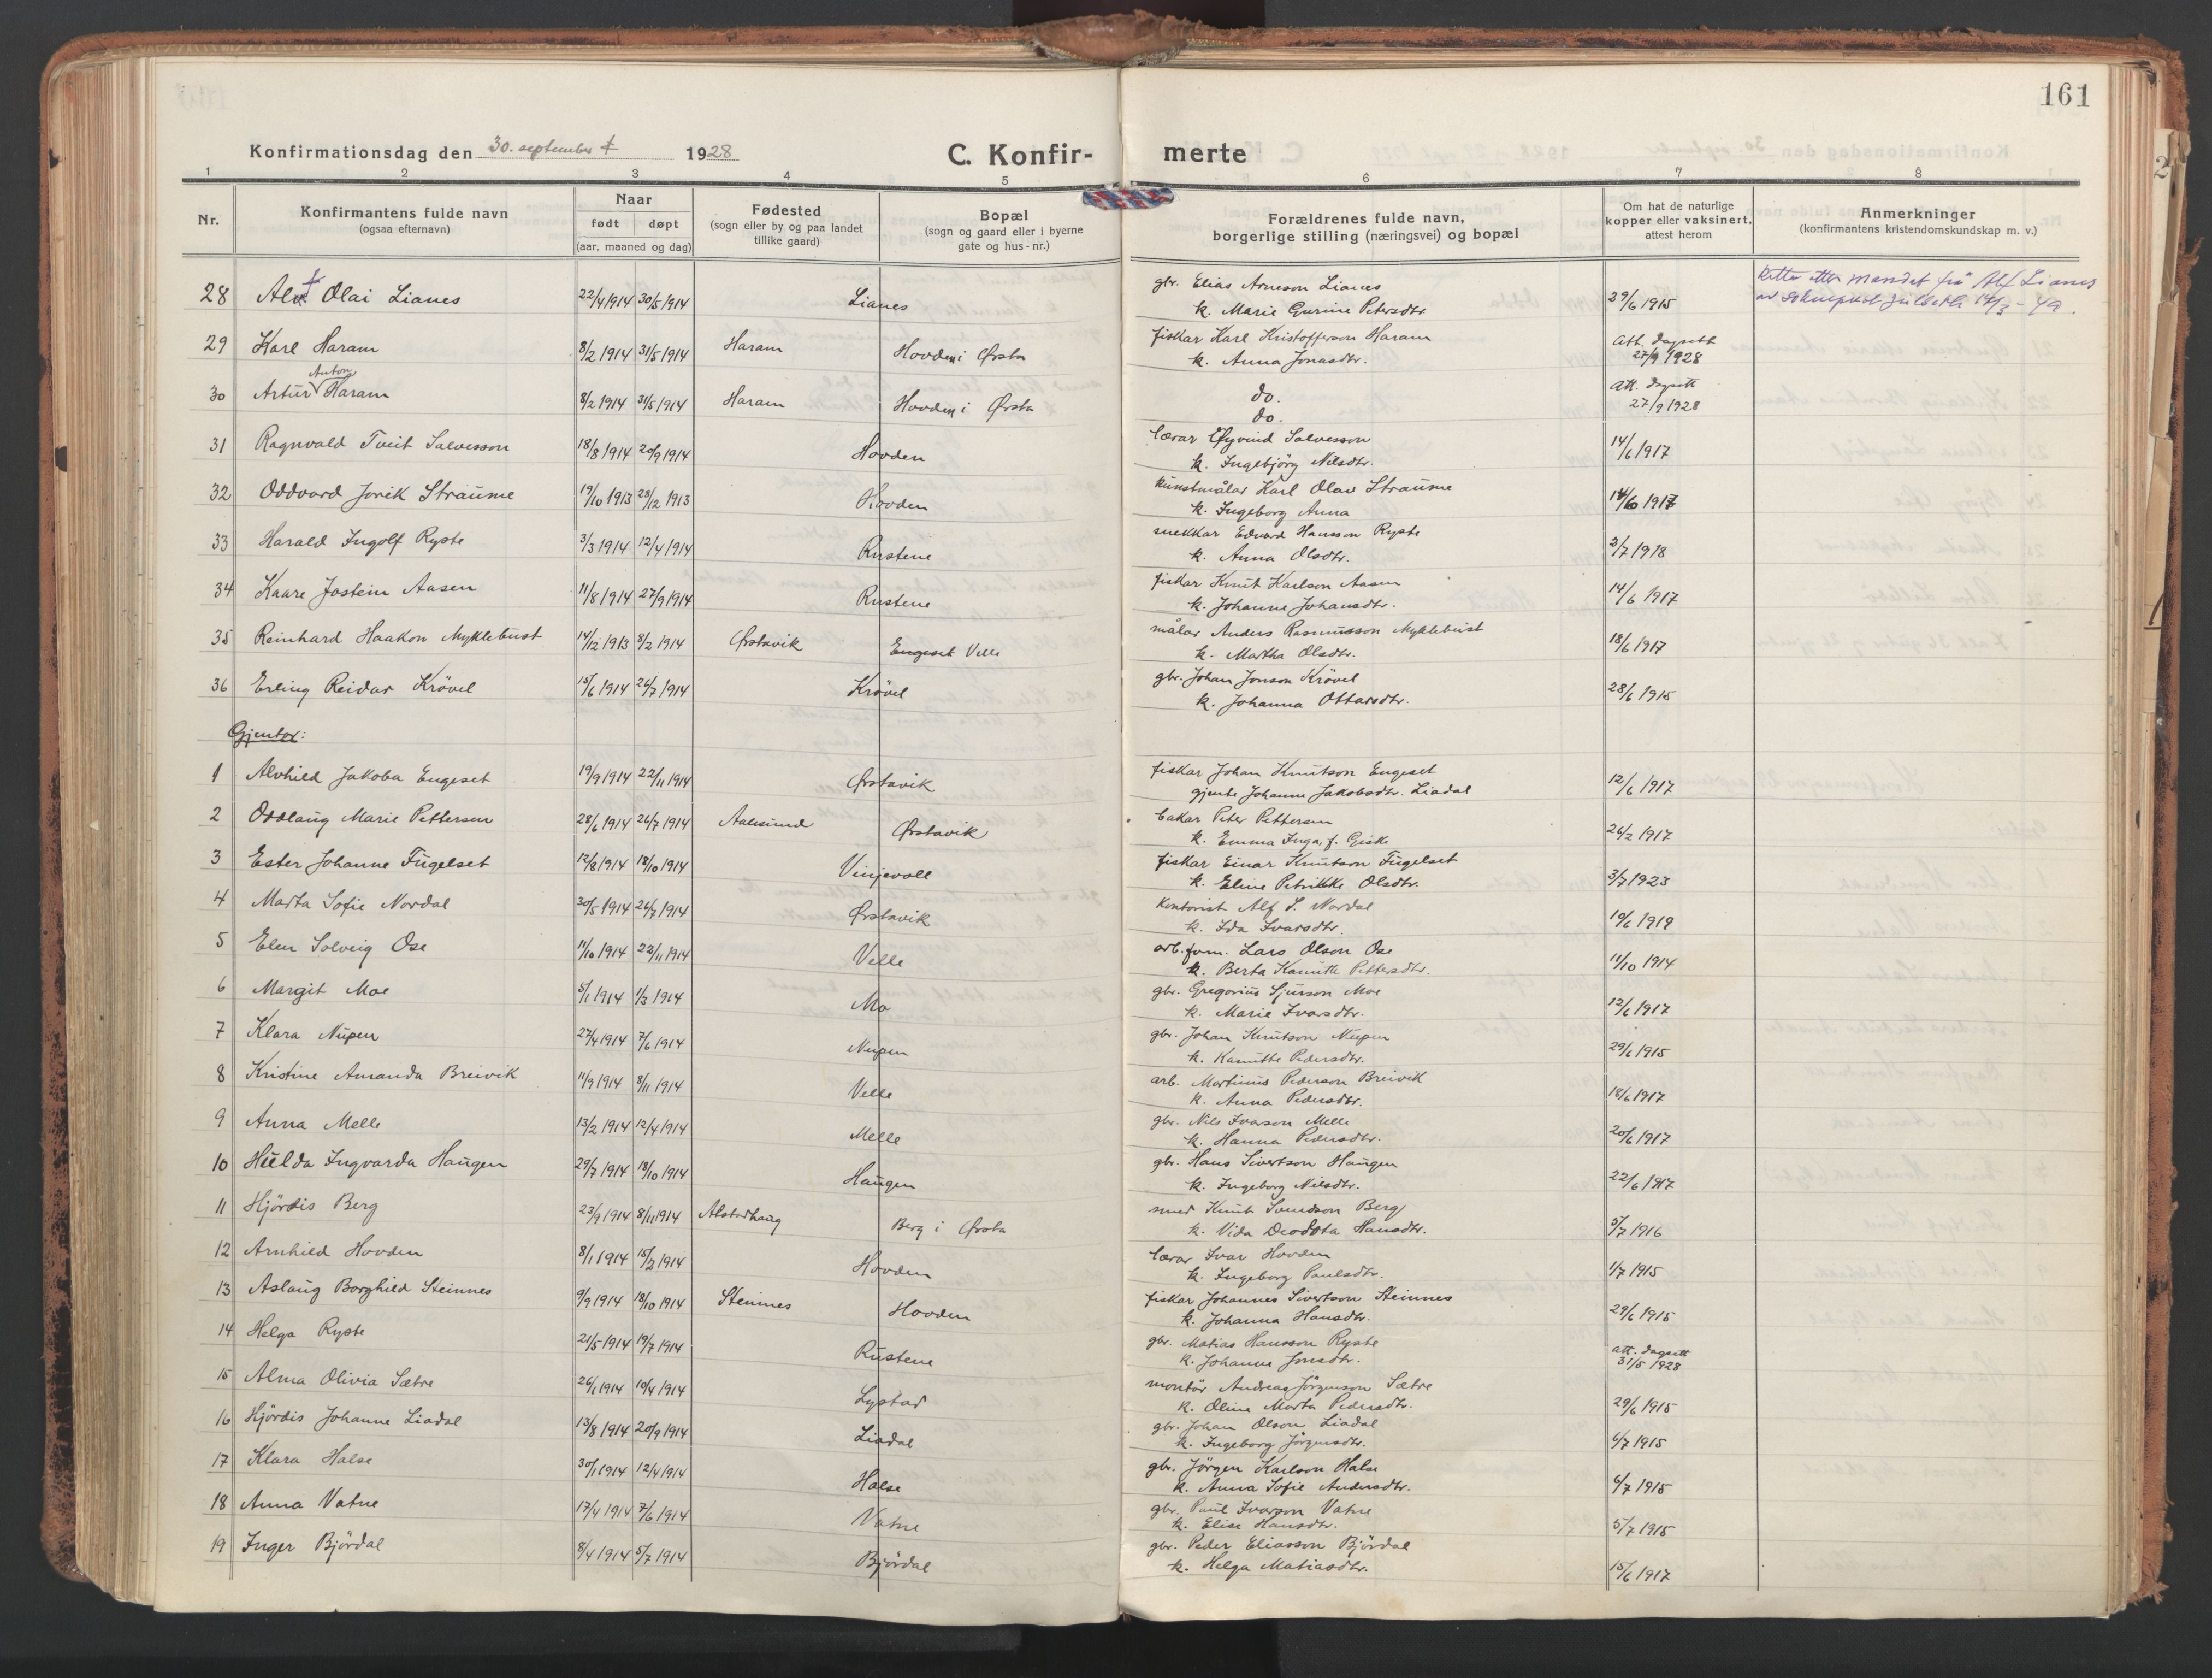 161
Konfirmationsdag den 30. september 1928
C. Konfir- merte
1 2 3 4 5 6 7 8
Nr.
Konfirmantens fulde navn
(ogsaa efternavn)
Naar
født døpt
(aar, maaned og dag)
Fødested
(sogn eller by og paa landet
tillike gaard)
Bopæl
(sogn og gaard eller i byerne
gate og hus-nr.)
Forældrenes fulde navn,
borgerlige stilling (næringsvei) og bopæl
Om hat de naturlige
kopper eller vaksinert,
attest herom
Anmerkninger
(konfirmantens kristendomskundskap m. v.)
28 Alf Olai Lianes 22/4 1914 30/5 1914 Lianes gbr. Elias Arneson Lianes
k. Marie Gurine Petersdtr. 29/6 1915
Retta etter mandat frå Alf Lianes
17/3-49.
29 Karl Haram 8/2 1914 31/5 1914 Haram Hovden i Ørsta fiskar Karl Kristofferson Haram
k. Anna Jonasdtr. Att. dagsett
27/9 1928
30 Artur Anton Haram 8/2 1914 31/5 1914 Haram Hovden i Ørsta do.
do. Att. dagsett
27/9 1928
31 Ragnvald Tveit Salvesson 18/8 1914 20/9 1914 Hovden lærar Øyvind Salvesson
k. Ingebjörg Nilsdtr. 14/6 1917
32 Oddvard Jorik Straume 19/10 1913 28/12 1913 Hovden kunstmålar Karl Olav Straume
k. Ingeborg Anna 14/6 1917
33 Harald Ingolf Ryste 3/3 1914 12/4 1914 Rustene snekkar Edvard Hansson Ryste
k. Anna Olsdtr. 3/7 1918
34 Kaare Jostein Aasen 11/8 1914 27/9 1914 Rustene fiskar Knut Karlson Aasen
k. Johanne Johansdtr. 14/6 1917
35 Reinhard Haakon Myklebust 14/12 1913 8/2 1914 Ørstavik Engeset Velle målar Anders Rasmusson Myklebust
k. Martha Olsdtr. 18/6 1917
36 Erling Reidar Krövel 15/6 1914 26/7 1914 Krövel gbr. Johan Jonson Krövel
k. Johanna Ottarsdtr. 28/6 1915
Gjentor:
1 Alvhild Jakoba Engeset 19/9 1914 22/11 1914 Ørstavik fiskar Johan Knutson Engeset
gjente Johanne Jakobsdtr. Liadal 12/6 1917
2 Oddlaug Marie Pettersen 28/6 1914 26/7 1914 Aalesund Ørstavik bakar Peter Pettersen
k. Emma Inga, f. Giske 26/2 1917
3 Ester Johanne Fugelset 12/8 1914 18/10 1914 Vinjevoll fiskar Einar Knutson Fugelset
k. Eline Petrikke Olsdtr. 3/7 1923
4 Marta Sofie Nordal 30/5 1914 26/7 1914 Ørstavik kontorist Alf S. Nordal
k. Ida Ivarsdtr. 19/6 1919
5 Elen Solveig Ose 11/10 1914 22/11 1914 Velle arb.form. Lars Olson Ose
k. Berta Kanutte Pettersdtr. 11/10 1914
6 Margit Moe 5/1 1914 1/3 1914 Mo gbr. Gregorius Sjurson Moe
k. Marie Ivarsdtr. 12/6 1917
7 Klara Nupen 27/4 1914 7/6 1914 Nupen gbr. Johan Knutson Nupen
k. Kanutte Pedersdtr. 29/6 1915
8 Kristine Amanda Breivik 11/9 1914 8/11 1914 Velle arb. Martinus Pederson Breivik
k. Anna Pedersdtr. 18/6 1917
9 Anna Melle 13/2 1914 12/4 1914 Melle gbr. Nils Ivarson Melle
k. Hanna Pedersdtr. 20/6 1917
10 Hulda Ingvarda Haugen 29/7 1914 18/10 1914 Haugen gbr. Hans Sivertson Haugen
k. Ingeborg Nilsdtr. 22/6 1917
11 Hjördis Berg 23/9 1914 8/11 1914 Alstadhaug Berg i Ørsta smed Knut Svendson Berg
k. Vida Deodota Hansdtr. 5/7 1916
12 Arnhild Hovden 8/1 1914 15/2 1914 Hovden lærar Ivar Hovden
k. Ingeborg Paulsdtr. 1/7 1915
13 Aslaug Borghild Steinnes 9/9 1914 18/10 1914 Steinnes Hovden fiskar Johannes Sivertson Steinnes
k. Johanna Hansdtr. 29/6 1915
14 Helga Ryste 21/5 1914 19/7 1914 Rustene gbr. Matias Hansson Ryste
k. Johanne Jonsdtr. att. dagsett
31/5 1928
15 Alma Olivia Sætre 26/1 1914 19/4 1914 Lystad montör Andreas Jörgenson Sætre
k. Oline Marta Pedersdtr. 29/6 1915
16 Hjördis Johanne Liadal 13/8 1914 20/9 1914 Liadal gbr. Johan Olson Liadal
k. Ingeborg Jörgensdtr. 6/7 1915
17 Klara Halse 30/1 1914 12/4 1914 Halse gbr. Jörgen Karlson Halse
k. Anna Sofie Andersdtr. 6/7 1915
18 Anna Vatne 17/4 1914 7/6 1914 Vatne gbr. Paul Ivarson Vatne
k. Elise Hansdtr. 5/7 1915
19 Inger Björdal 8/4 1914 5/7 1914 Björdal gbr. Peder Eliasson Björdal
k. Helga Matiasdtr. 15/6 1917